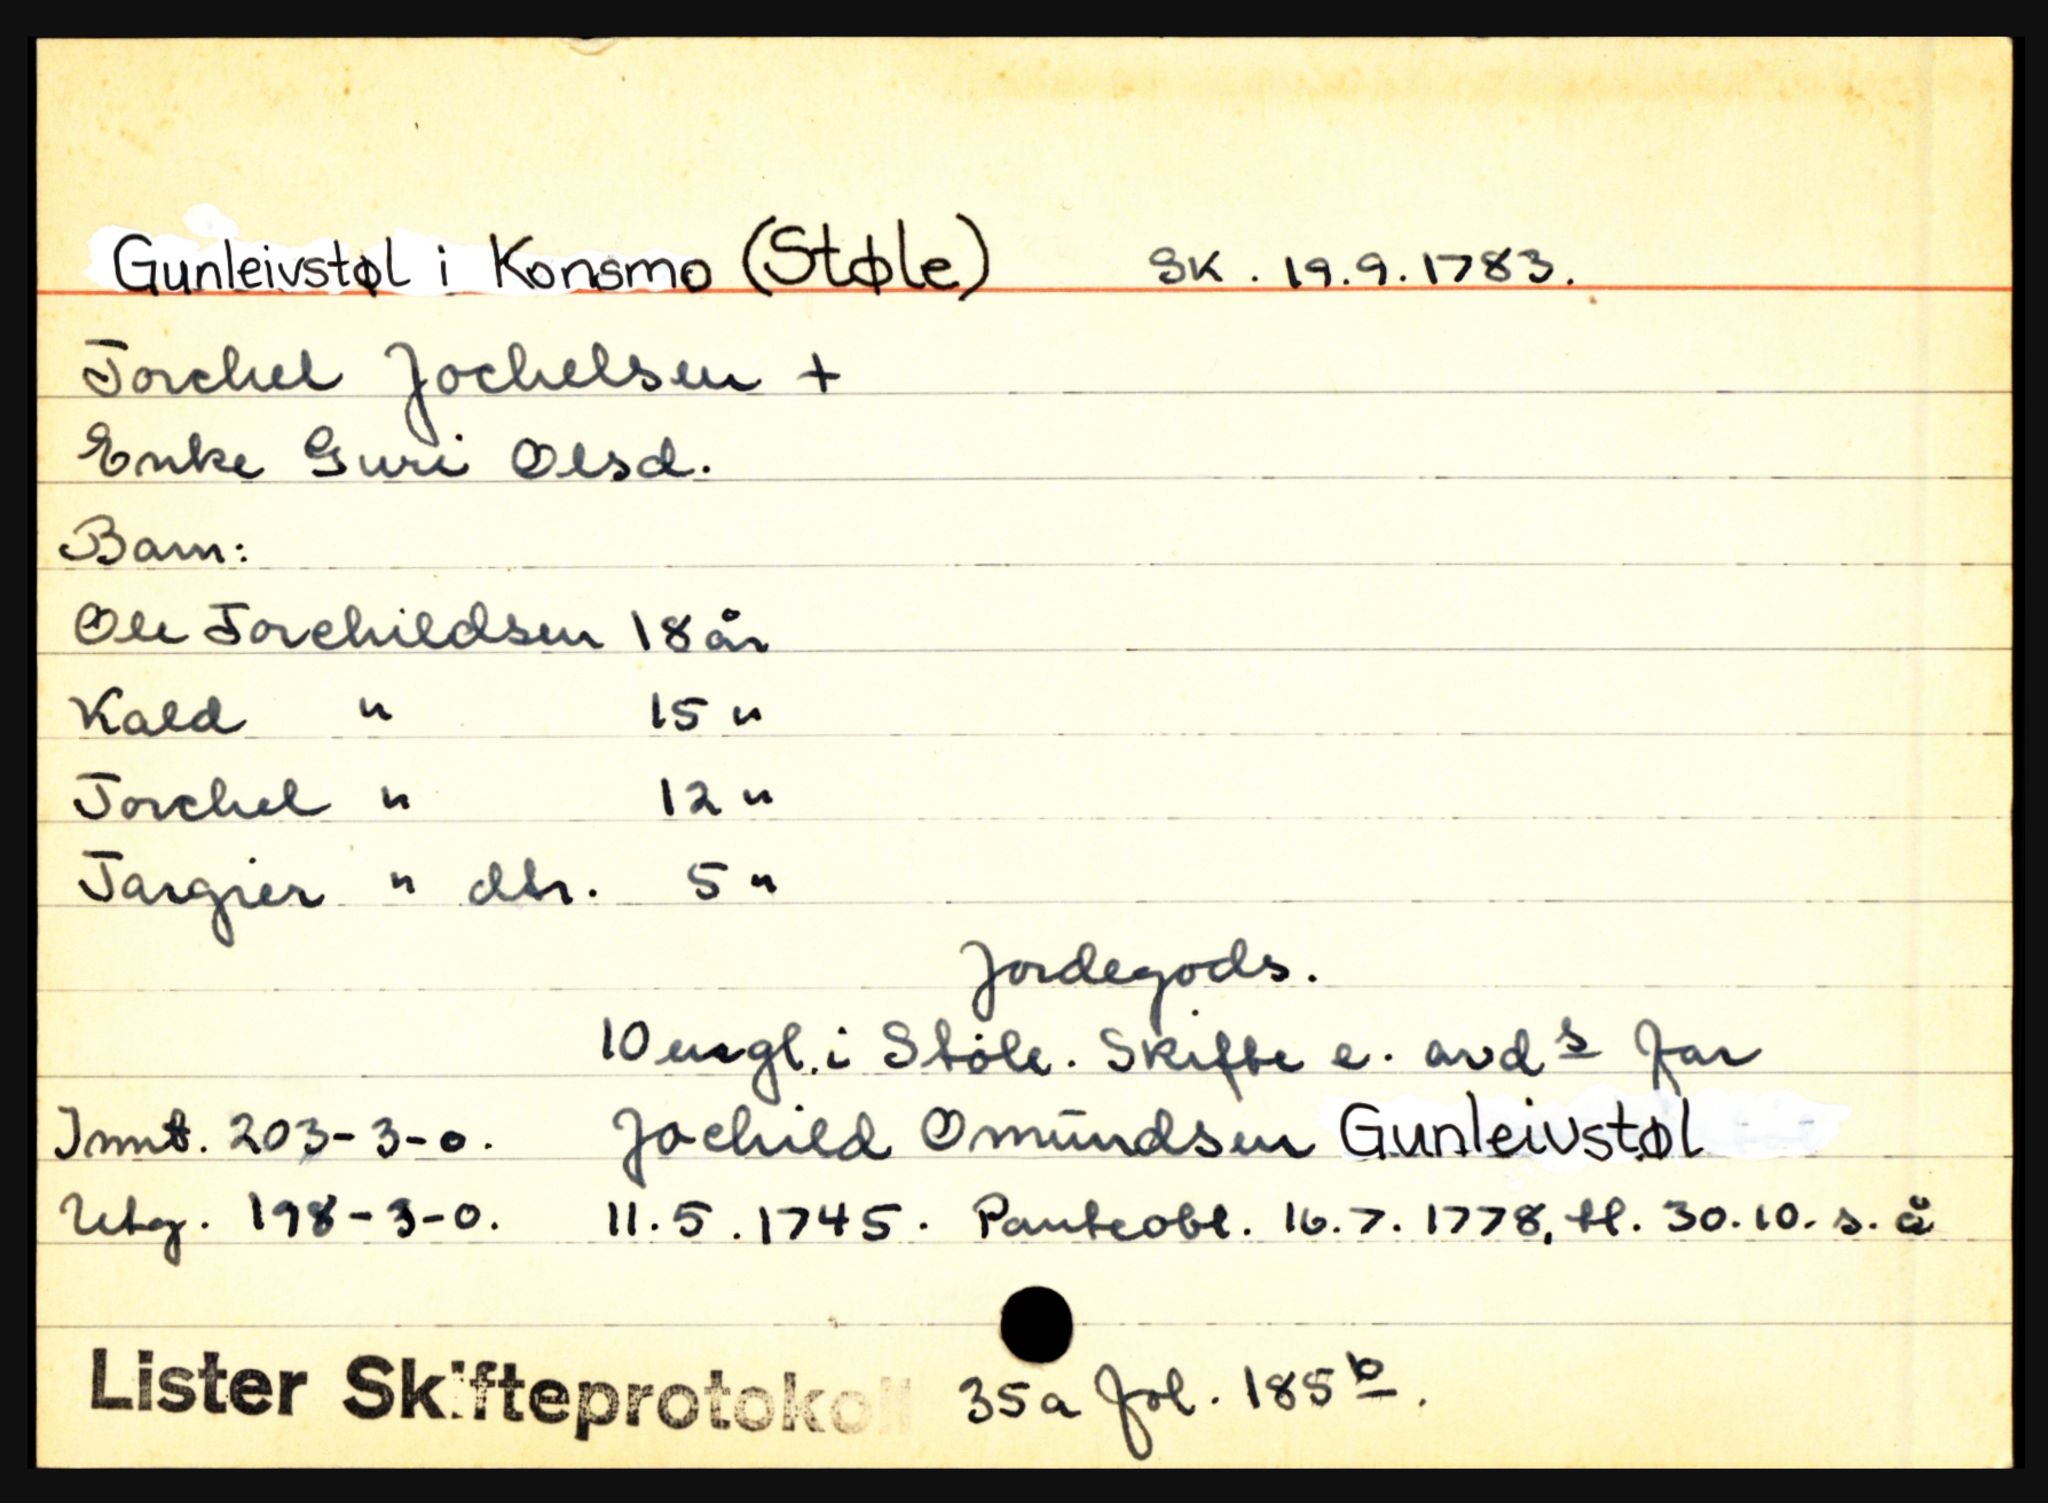 Gunleivstøl i Konsmo (Støle) SK. 19.9.1783.
Torchel Jochelsen +
Enke Guri Olsd.
Barn:
Ole Torchildsen 18 år
Kald " 15 "
Torchel " 12 "
Targier " dtr. 5 "
Jordegods.
10 engl. i Støle. Skifte e. avds far
Innt. 203-3-0. Jochild Omundsen Gunleivstøl
Utg. 198-3-0. 11.5.1745. Panteobl. 16.7.1778, tl. 30.10. s. å
Lister Skifteprotokoll 35a fol. 185b.